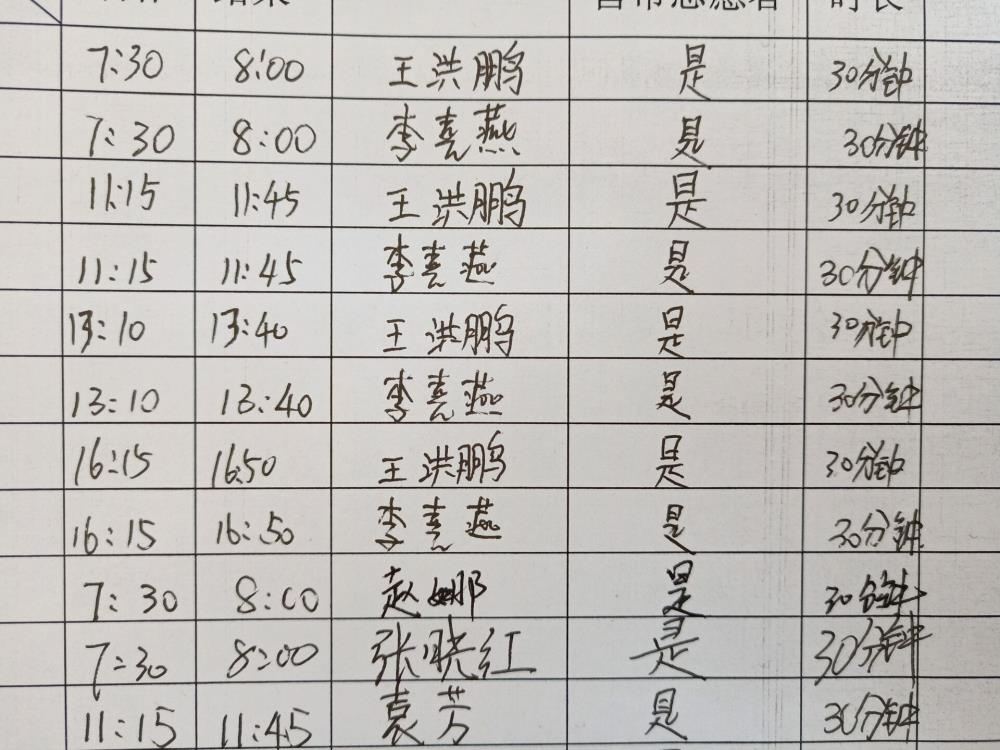 结束 志愿者 时长
7:30 8:00 王洪鹏 是 30分钟
7:30 8:00 李喜燕 是 30分钟
11:15 11:45 王洪鹏 是 30分钟
11:15 11:45 李喜燕 是 30分钟
13:10 13:40 王洪鹏 是 30分钟
13:10 13:40 李喜燕 是 30分钟
16:15 16:50 王洪鹏 是 30分钟
16:15 16:50 李喜燕 是 30分钟
7:30 8:00 赵娜 是 30分钟
7:30 8:00 张晓红 是 30分钟
11:15 11:45 袁芳 是 30分钟